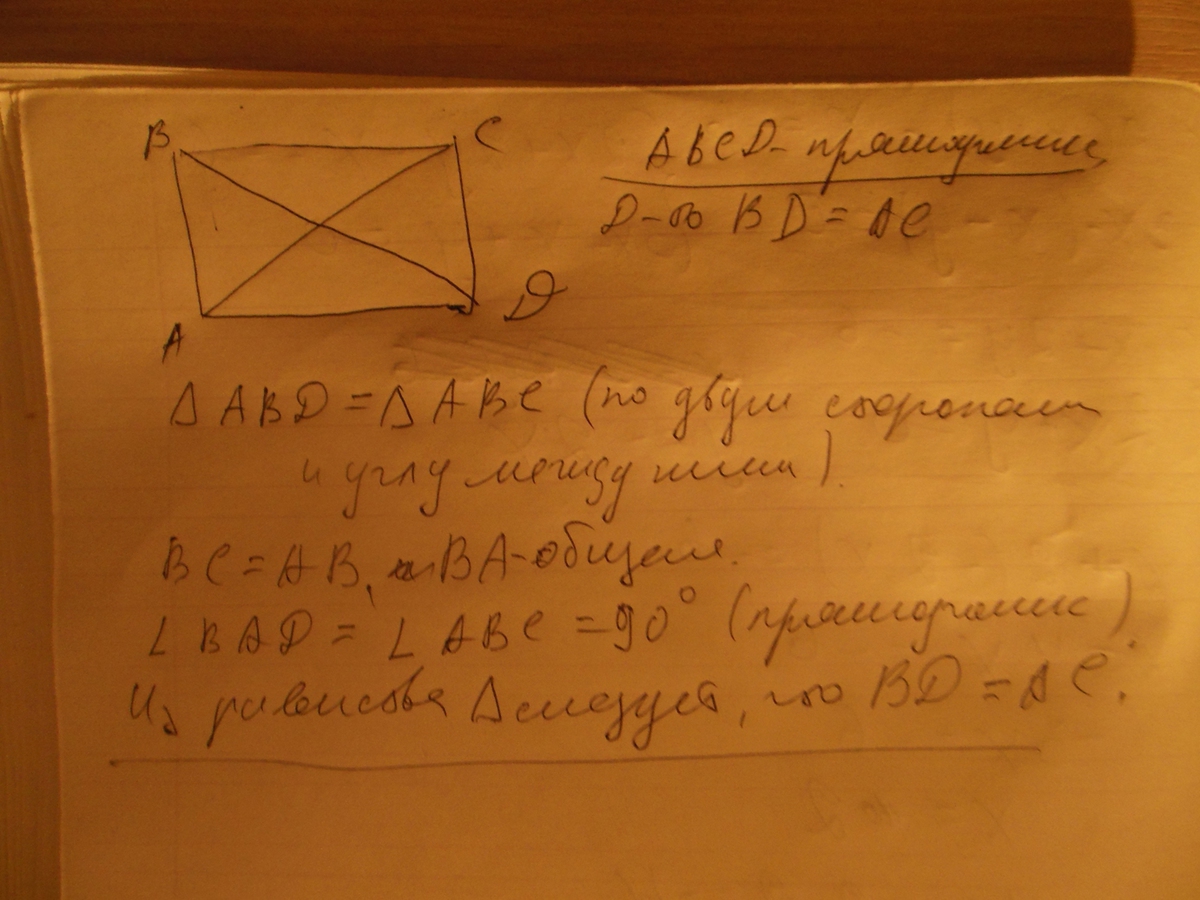 B C
ABCD - прямоугольник
D-ть BD = AC
A D
Δ ABD = Δ ABC (по двум сторонам
и углу между ними).
BC = AB, BA - общая.
∠ BAD = ∠ ABC = 90° (прямоугольник)
Из равенства Δ следует, что BD = AC.